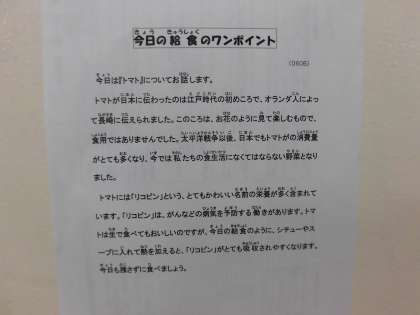 今日の給食のワンポイント
(0606)
今日は『トマト』についてお話します。
トマトが日本に伝わったのは江戸時代の初めころで、オランダ人によっ
て長崎に伝えられました。このころは、お花のように見て楽しむもので、
食用ではありませんでした。太平洋戦争以後、日本でもトマトがの消費量
がとても多くなり、今では私たちの食生活になくてはならない野菜となり
ました。
トマトには「リコピン」という、とてもかわいい名前の栄養が多く含まれて
います。「リコピン」は、がんなどの病気を予防する働きがあります。トマ
トは生で食べてもおいしいのですが、今日の給食のように、シチューやス
ープに入れて熱を加えると、「リコピン」がとても吸収されやすくなります。
今日も残さずに食べましょう。